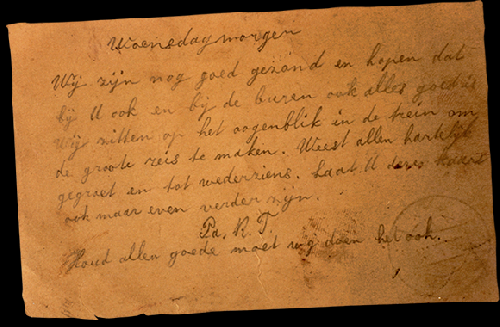 Woensdagmorgen
Wij zijn nog goed gezond en hopen dat
bij U ook en bij de buren ook alles goed is
Wij zitten op het oogenblik in de trein om
de groote reis te maken. Weest allen hartelijk
gegroet en tot wederziens. Laat U deze kaart
ook maar even verder zijn.
Pa. R. T.
Houd allen goede moet wij doen het ook.